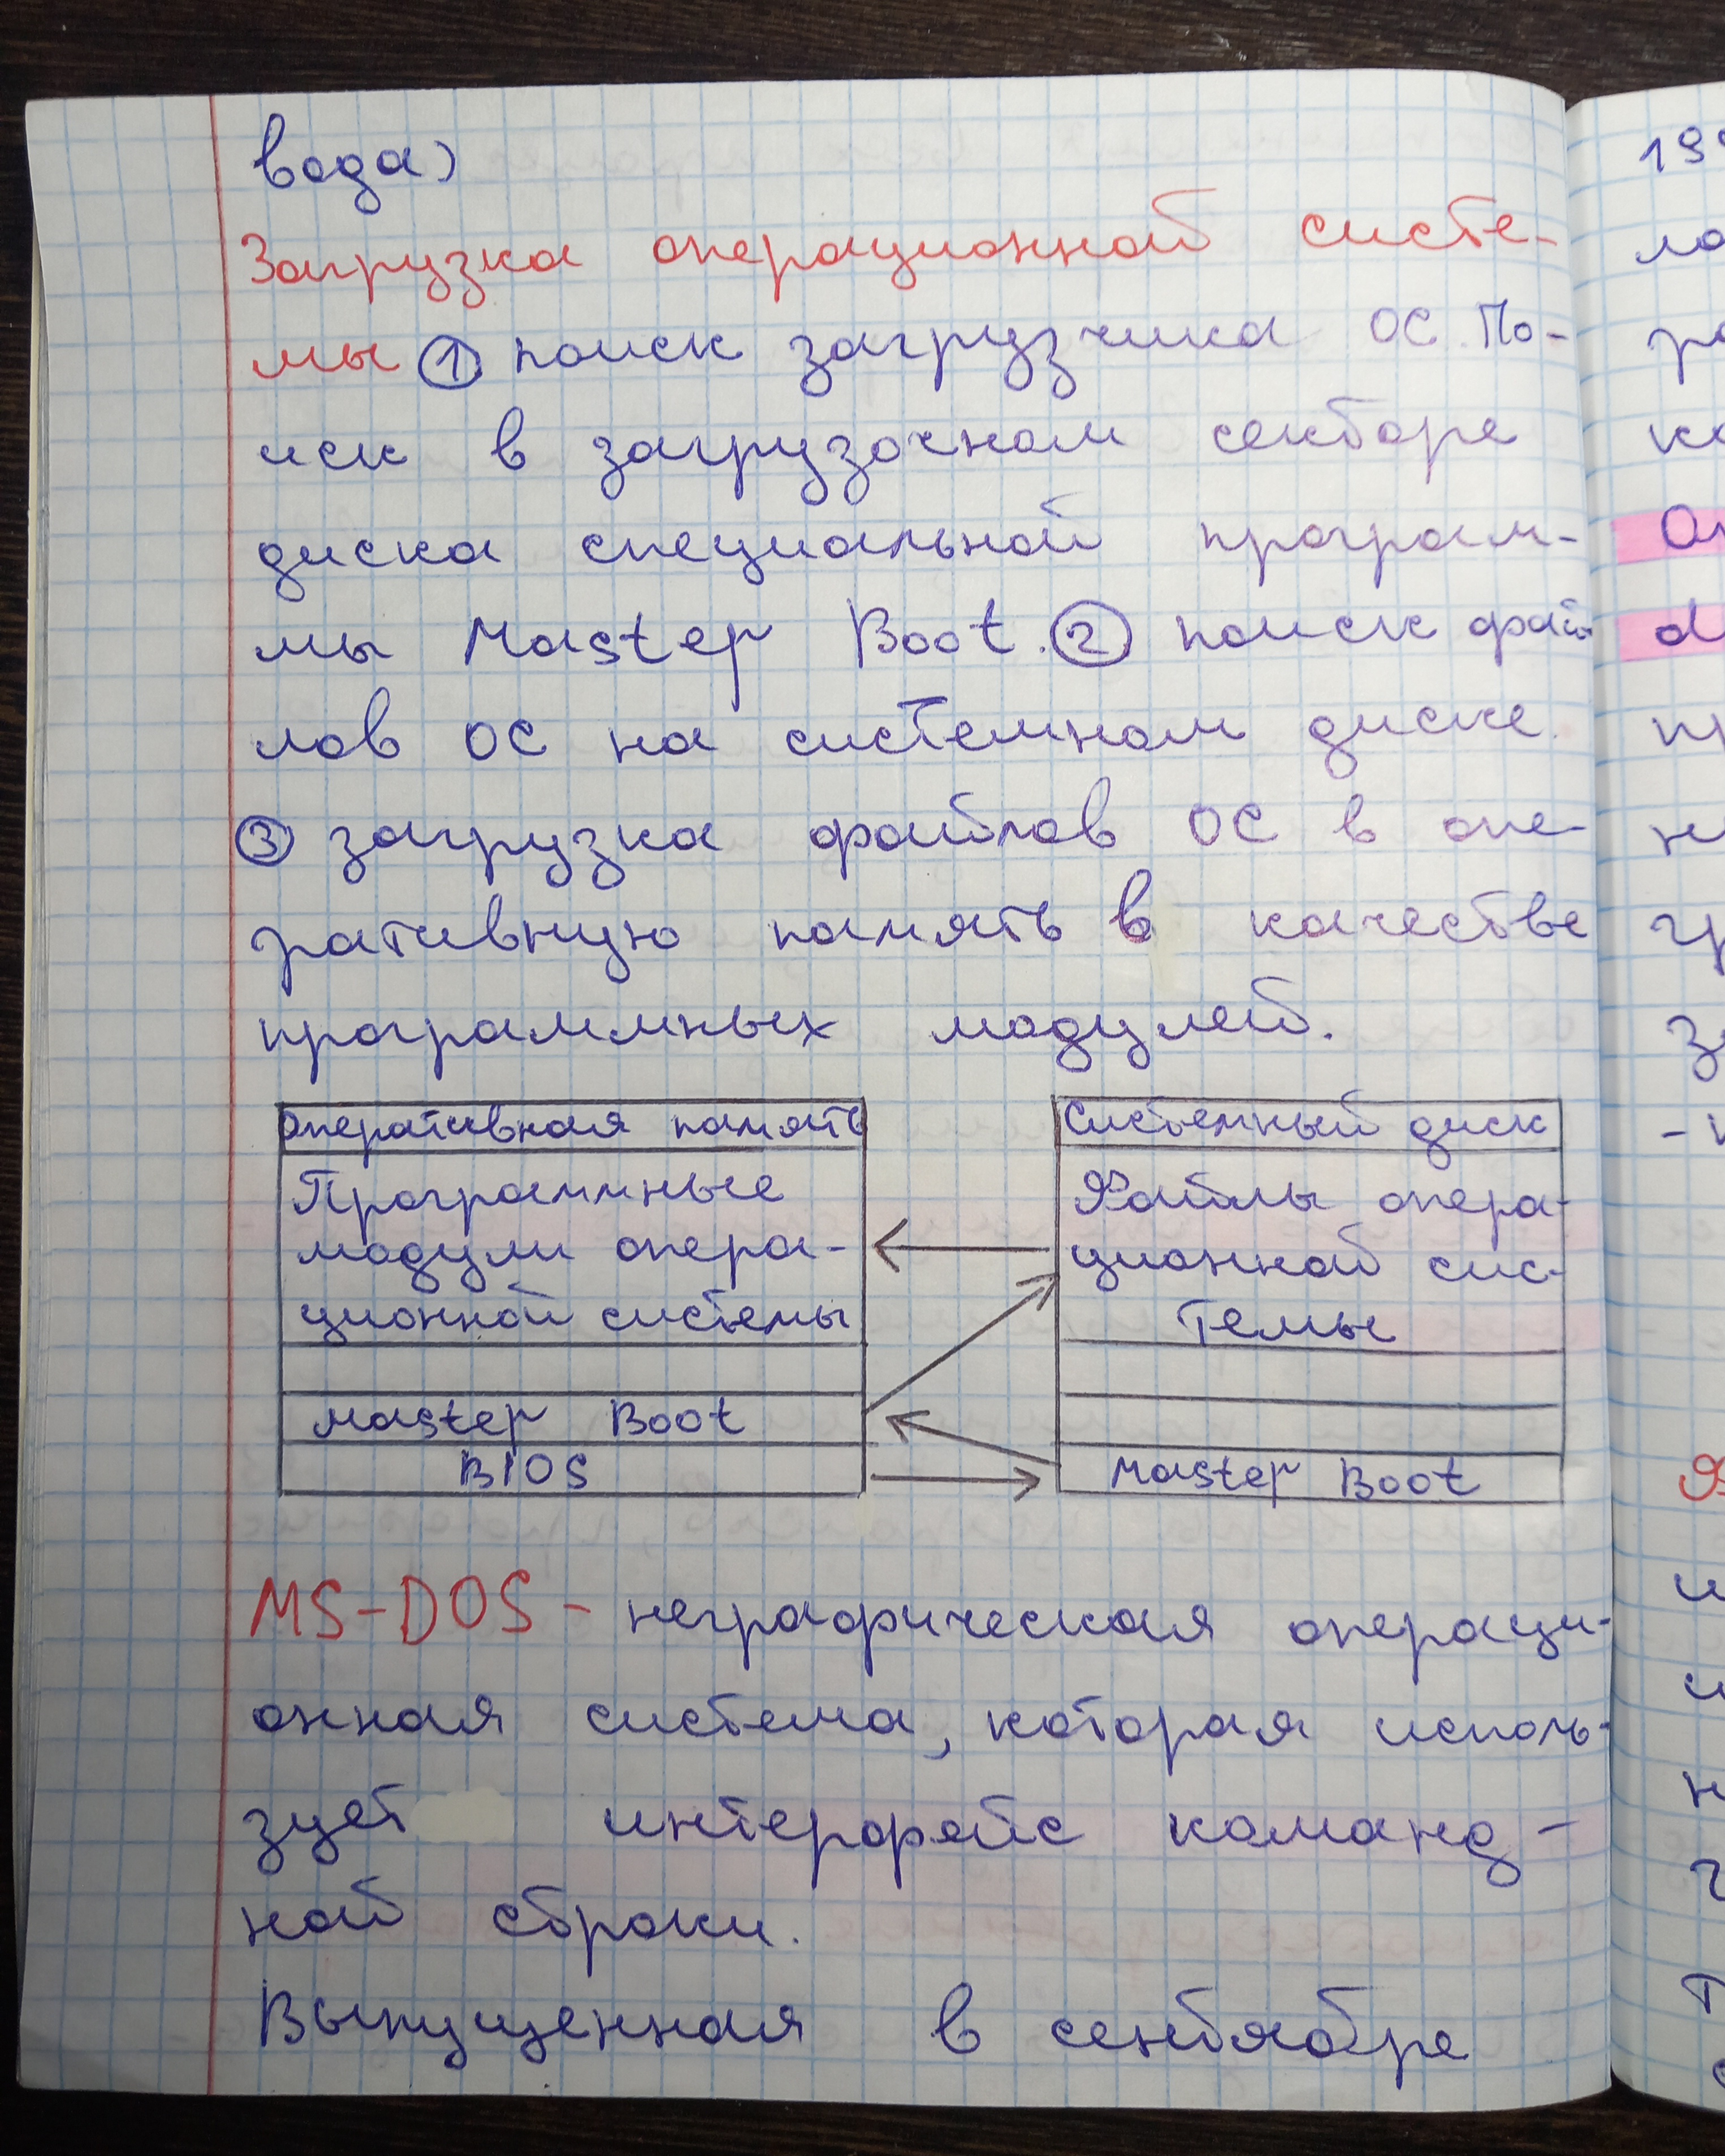 вода)
Загрузка операционной систе-
мы ① поиск загрузчика ОС. По-
иск в загрузочном секторе
диска специальной програм-
мы Master Boot. ② поиск фай-
лов ОС на системном диске.
③ загрузка файлов ОС в опе-
ративную память в качестве
программных модулей.
Оперативная память
Программные
модули опера-
ционной системы
Master Boot
BIOS
Системный диск
Файлы опера-
ционной сис-
темы
Master Boot
MS-DOS - неграфическая операци-
онная система, которая исполь-
зует интерфейс команд-
ной строки.
Выпущенная в сентябре